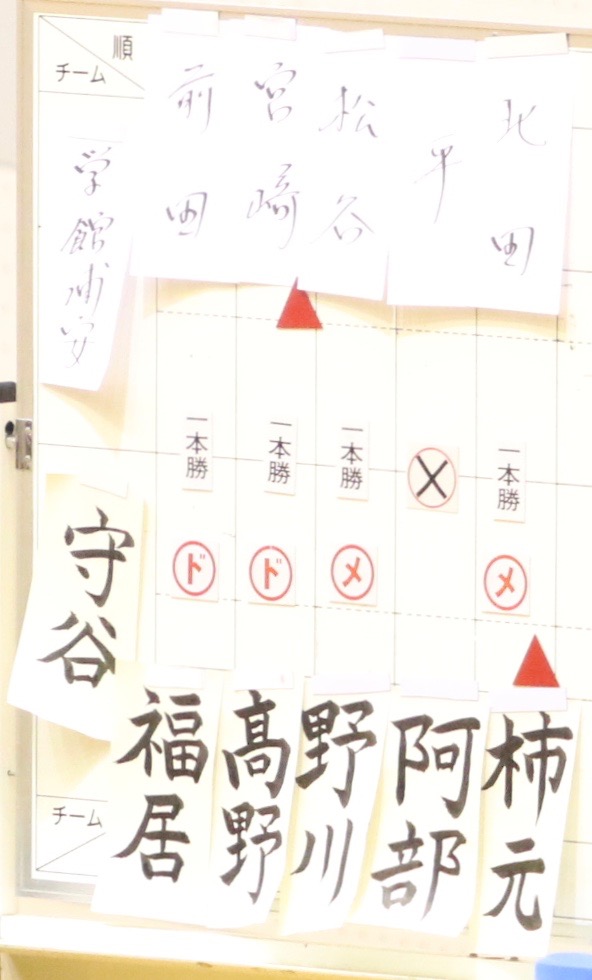 順
チーム
前田
宮崎
松谷
平
北田
学館浦安
一本勝
一本勝
一本勝
一本勝
ド
ド
メ
メ
守谷
福居
髙野
野川
阿部
柿元
チーム